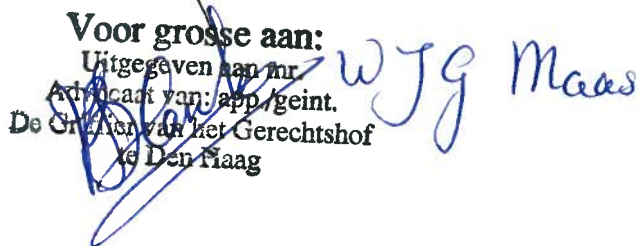 Voor grosse aan:
Uitgegeven aan mr. W J G Maas
Advocaat van: app./geint.
De Griffier van het Gerechtshof
te Den Haag